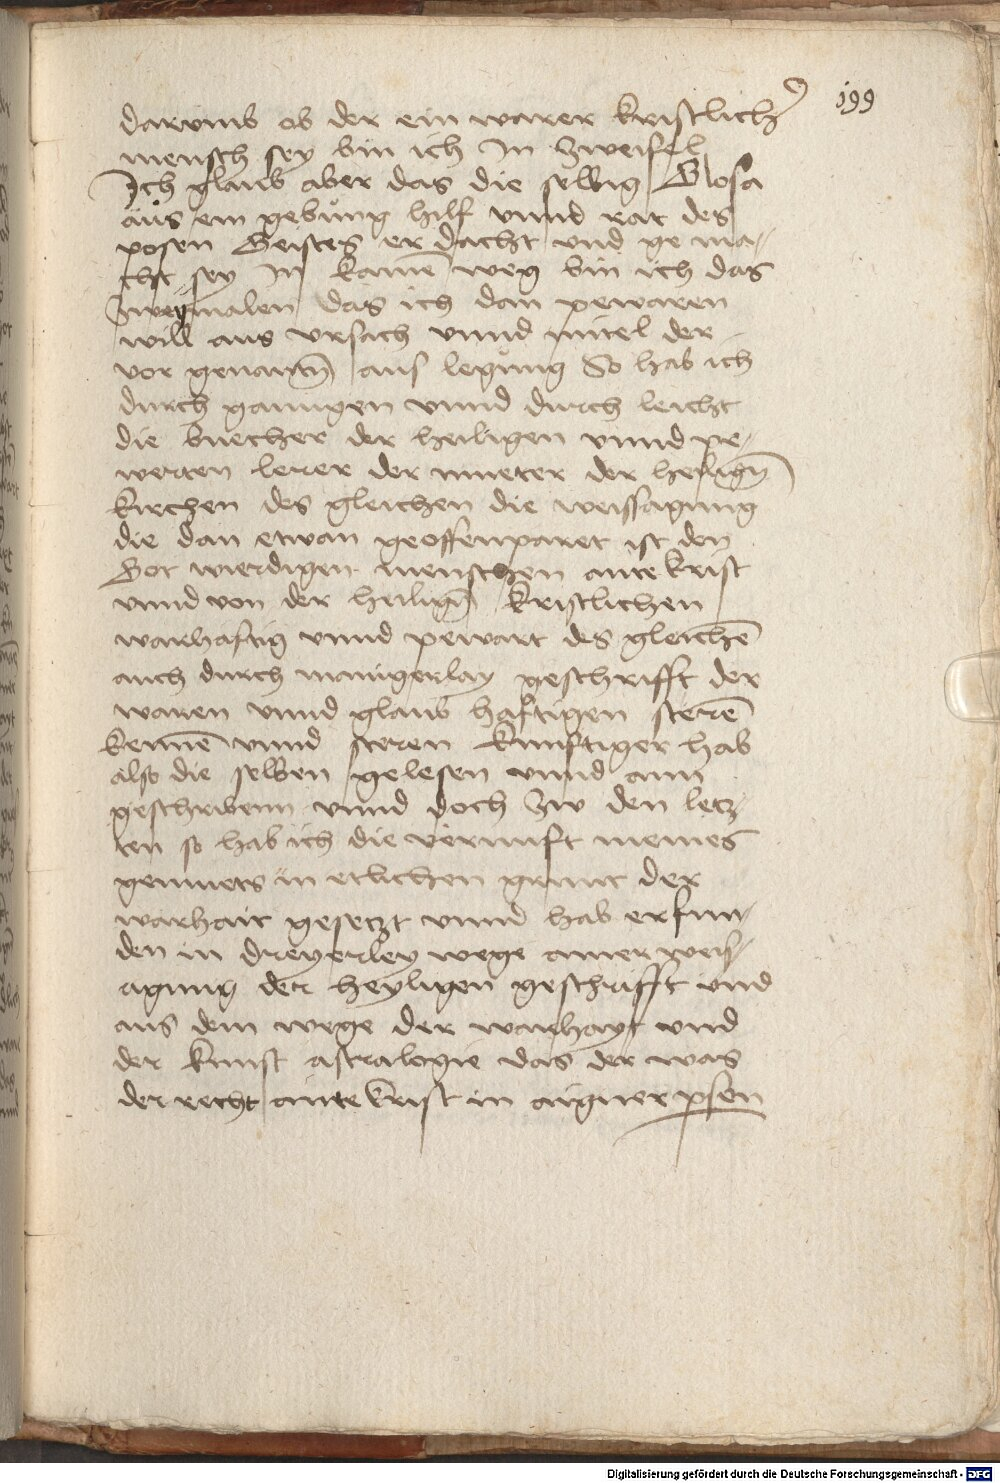 199
darumb ob der ein warer kristlicher
mensch sey bin ich In zweifel
Ich glaub aber das die selbig Glosa
aus ein gebung hilf vnnd rat des
posen Geistes er dacht vnd ge ma⸗
cht sey In kaine weg bin ich das
zweymalen das ich dan pewaren
will aus vrsach vnnd mitel der
vor genantn aus legung So hab ich
durch gangen vnnd durch leicht
die buecher der heiligen vnnd pe⸗
werten lerer der mueter der heilign
kirchen des gleichen die weissagung
die dan etwan geoffenparet ist den
Got wierdigen menschen ante krist
vnnd von der heilign kristlichen
warhaftig vnnd pewart des gleichē
auch durch manigerlay geschrifft der
waren vnnd glaub haftigen sterē
kennē vnnd steren kunftiger hab
also die selben gelesen vnnd ann
geschribenn vnnd doch zw den letz⸗
ten so hab ich die vernuft meines
gemuets in etlichen grunt der
warhait gesetzt vnnd hab erfun⸗
den in dreyerley wege ainer weis⸗
agung der heyligen geschrifft vnd
aus dem wege der warhayt vnd
der kunst astralogie das der was
der recht ante krist in aigner psen
Digitalisierung gefördert durch die Deutsche Forschungsgemeinschaft - DFG